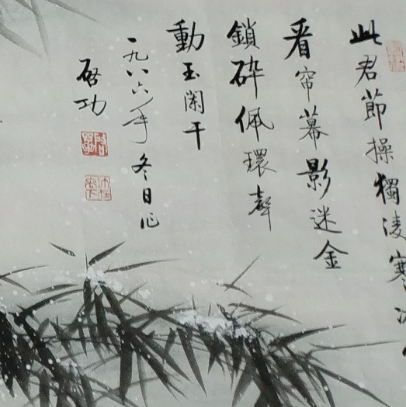 此君節操獨凌寒
看帘幕影迷金
鎖碎佩環聲
動玉闌干
一九八六年冬日作
啓功